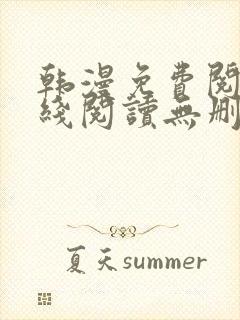 韩漫免費閱
綫閱讀無刪
夏天summer